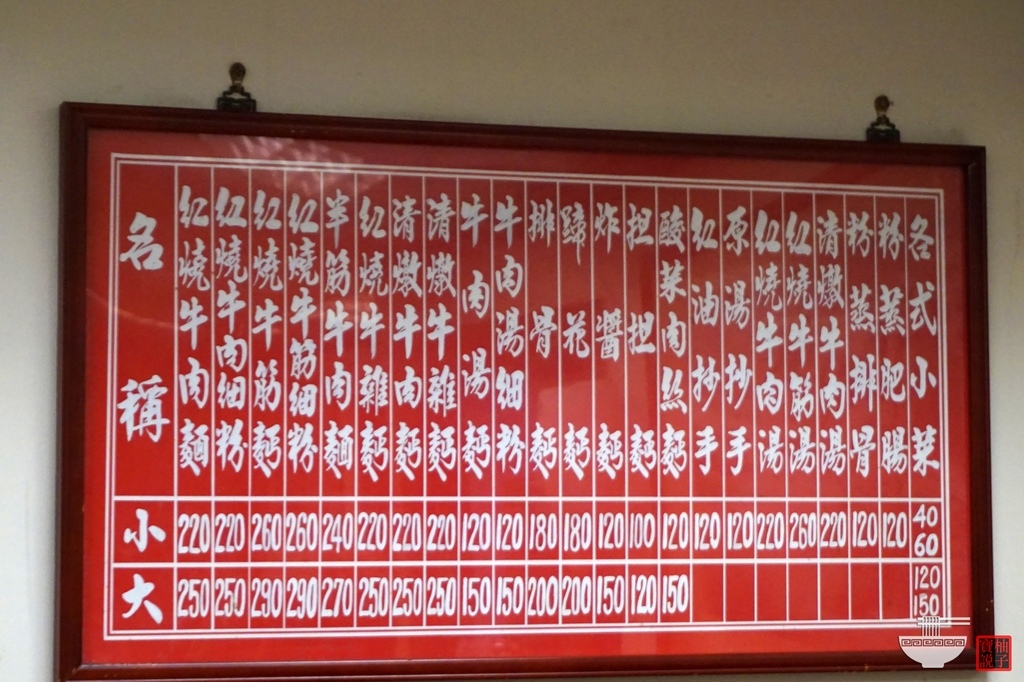 名稱 小 大
紅燒牛肉麵 220 250
紅燒牛肉細粉 220 250
紅燒牛筋麵 260 290
紅燒牛筋細粉 260 290
半筋牛肉麵 240 270
紅燒牛雜麵 220 250
清燉牛肉麵 220 250
清燉牛雜麵 220 250
牛肉湯麵 120 150
牛肉湯細粉 120 150
排骨麵 180 200
蹄花麵 180 200
炸醬麵 120 150
担担麵 100 120
酸菜肉絲麵 120 150
紅油抄手 120
原湯抄手 120
紅燒牛肉湯 220
紅燒牛筋湯 260
清燉牛肉湯 220
粉蒸排骨 120
粉蒸肥腸 120
各式小菜 40 60 120 150
柚子寶說